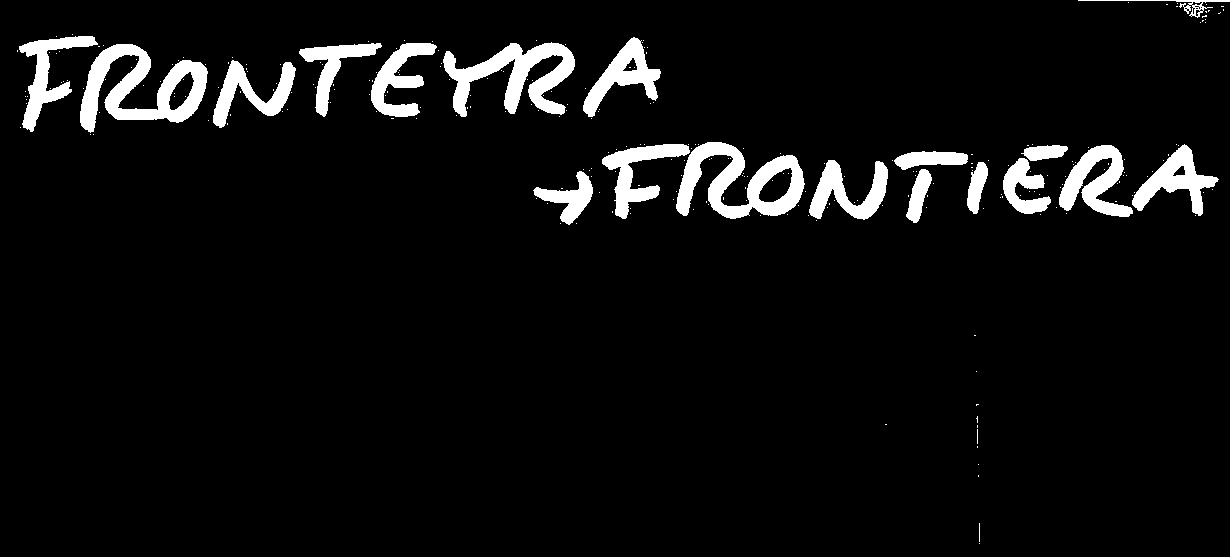 FRONTEYRA
→FRONTIERA